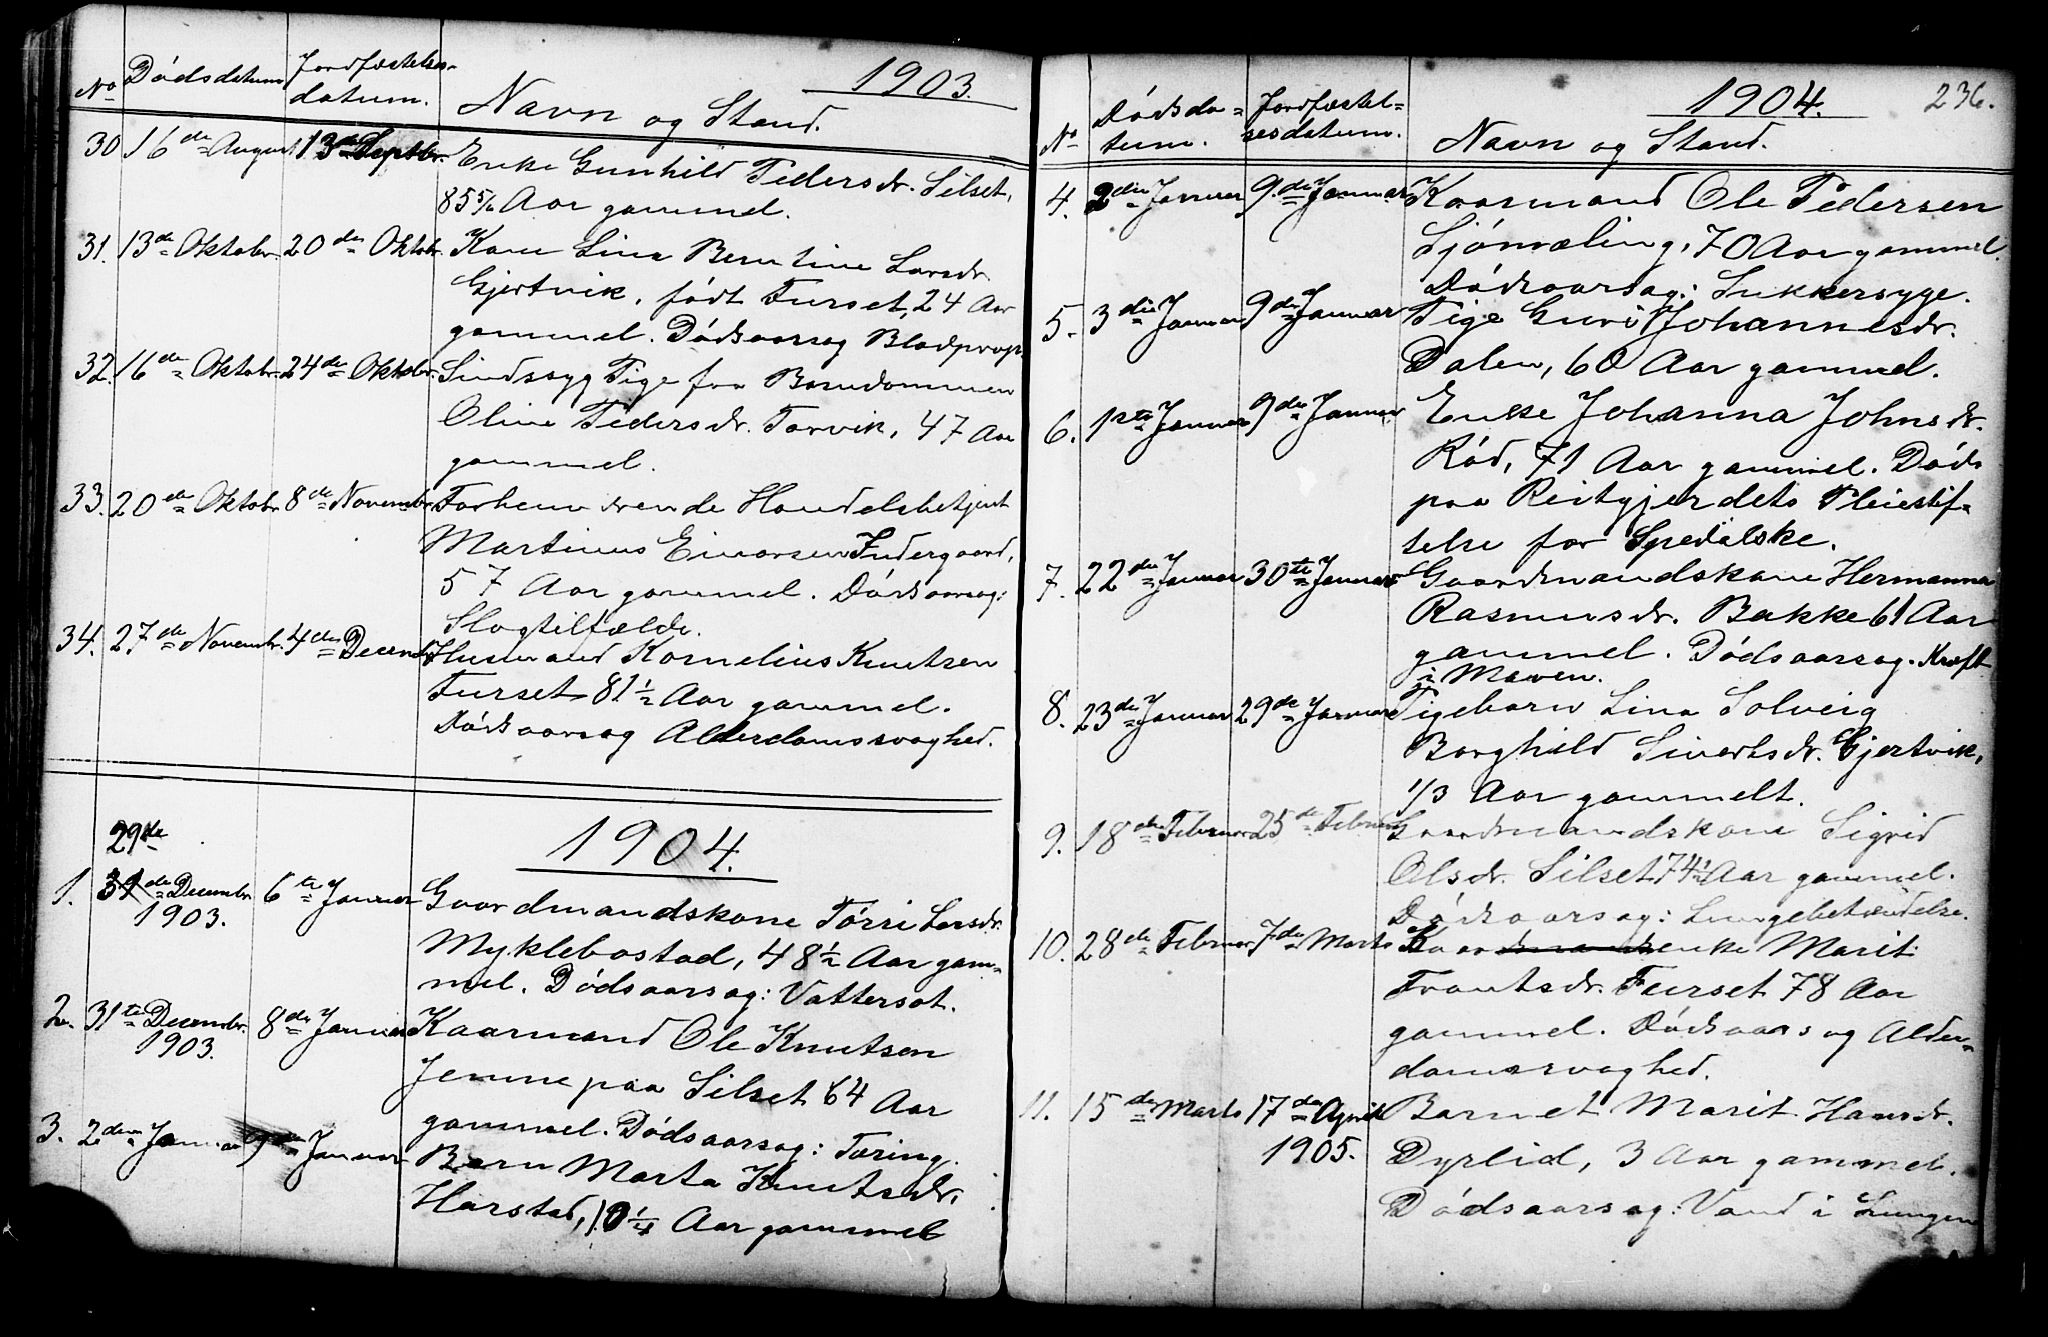 No Dødsdatum Jordfæstelses-
datum. Navn og Stand. 1903.
30 16de August 13de Septbr. Enke Gunhild Pedersdr. Silset,
85 5/6 Aar gammel.
31. 13de Oktober. 20de Oktob. Kone Lina Berntine Larsdr.
Gjertvik, født Furset, 24 Aar
gammel. Dødsaarsag Blodprop.
32. 16de Oktobr. 24de Oktober. Sindssyg Pige fra Barndommen
Oline Pedersdr. Torvik, 47 Aar
gammel.
33. 20de Oktobr 8de Novembr. Forhenværende Handelsbetjent
Martinus Einarsen Indergaard,
57 Aar gammel. Dødsaarsag:
Slagtilfælde.
34. 27de Novembr. 4de Decembr Husmand Kornelius Knutsen
Furset 81 1/2 Aar gammel.
Dødsaarsag Alderdomssvaghed.
1904.
29de
1. 31de Decembr 6te Januar Gaardmandskone Tørri Larsdr.
1903. Myklebostad, 48 1/2 Aar gam-
mel. Dødsaarsag: Vattersot.
2. 31te Decembr. 8de Januar Kaarmand Ole Knutsen
1903. Jenme paa Silset 64 Aar
gammel. Dødsaarsag: Tæring.
3. 2den Januar 9de Januar Barn Marta Knutsdr.
Harstad, 10 1/4 Aar gammel
236.
1904.
No Dødsda- Jordfæstel-
tum. sesdatum. Navn og Stand.
4. 2den Januar 9de Januar Kaarmand Ole Pedersen
Sjømæling, 70 Aar gammel.
Dødsaarsag: Sukkersyge.
5. 3die Januar 9de Januar Pige Guri Johannesdr.
Dalen, 60 Aar gammel.
6. 1ste Januar 9de Januar Enke Johanna Johnsdr.
Rød, 71 Aar gammel. Døds
paa Reitgjerdets Pleiestif-
telse for Spedalske.
7. 22de Januar 30te Januar Gaardmandskone Hermanna
Rasmusdr. Bakke 61 Aar
gammel. Dødsaarsag. Kræft
i Maven.
8. 23de Januar 29de Januar Pigebarn Lina Solveig
Borghild Sivertsdr. Gjertvik,
1/3 Aar gammelt.
9. 18de Februar 25de Februar Gaardmandskone Sigrid
Olsdr. Silset 74 1/2 Aar gammel.
Dødsaarsag: Lungebetændelse.
10. 28de Februar 7de Marts Kaarmandsenke Marit
Frantsdr. Furset 78 Aar
gammel. Dødsaarsag Alder-
domssvaghed.
11. 15de Marts 17de April Barnet Marit Hansdr.
1905. Dyrlid, 3 Aar gammel.
Dødsaarsag: Vand i Lungen